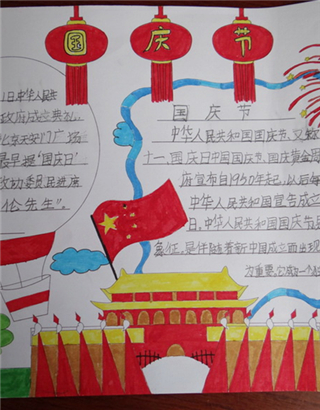 国 庆 节
1日,中华人民共
政府成立典礼,
北京天安门广场
最早提"国庆日"
政协委员民进席
伦先生"。
国 庆 节
中华人民共和国国庆节又称
十一、国庆日中国国庆节、国庆黄金周
府宣布自1950年起,以后每
中华人民共和国宣告成立
日。中华人民共和国国庆节是
象征,是伴随着新中国成立而出现
为重要。它成